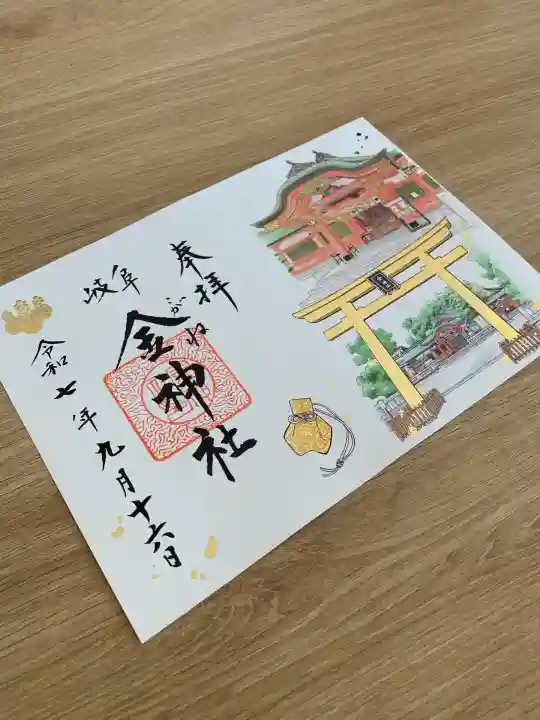 奉拝
岐阜
金神社
こがね
令和七年九月十六日